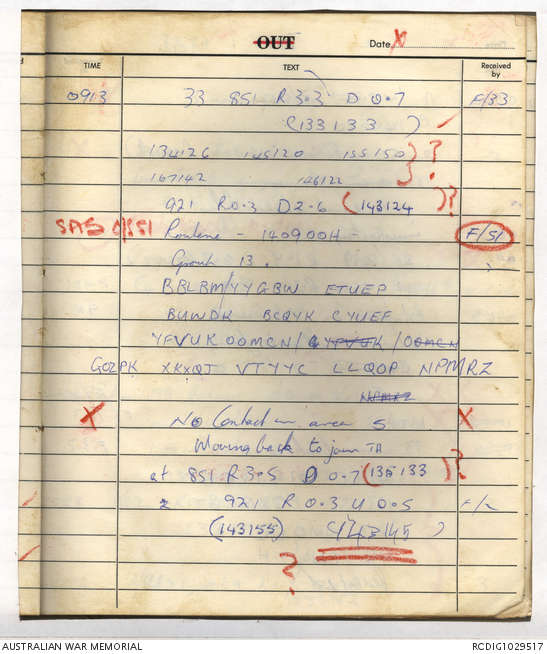 OUT Date
TIME TEXT Received by
0913 33 851 R 3.3 D 0.7 F/33
(133133)
134126 145120 155150 ?
167142 146122
921 R0.3 D2.6 (143124) ?
SAS Routine - 140900H - F/51
Group 13.
BBLBM/YYGBW ETUEP
BUWDK BCQYK CYUEF
YFVUK OOMCN/
GOZPK XKXQJ VTYYC LLQOP NPMRZ
NPMRZ
X No Contact in area S X
Moving back to join TA
at 851 R 3.5 D 0.7 (135133) ?
921 R 0.3 U 0.5
(143155) (143145)
?
AUSTRALIAN WAR MEMORIAL RCDIG1029517